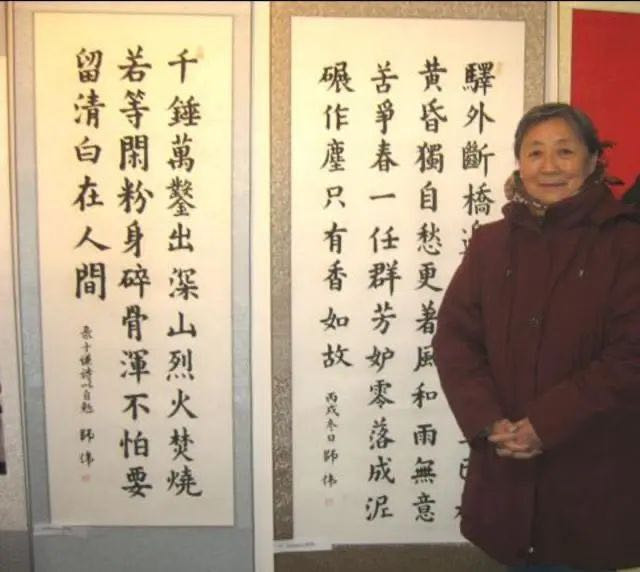 千錘萬鑿出深山烈火焚燒
若等閑粉身碎骨渾不怕要
留清白在人間
录于謙詩以自勉 師偉
驛外斷橋
黃昏獨自愁更著風和雨無意
苦爭春一任群芳妒零落成泥
碾作塵只有香如故
丙戌冬日 師偉